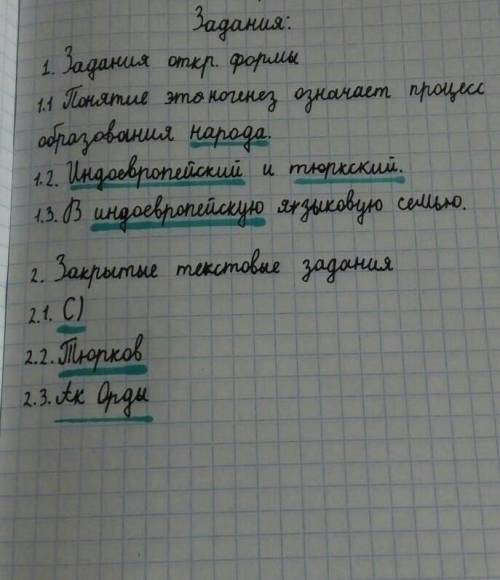 Задания:
1. Задания откр. формы
1.1 Понятие этногенез означает процесс
образования народа.
1.2. Индоевропейский и тюркский.
1.3. В индоевропейскую языковую семью.
2. Закрытые текстовые задания
2.1. С)
2.2. Тюрков
2.3. Ак Орды